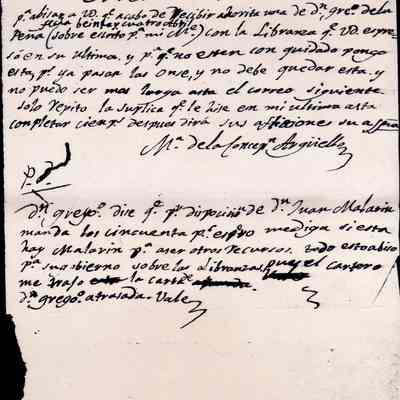 pª abisar a VD. qᵉ acabo de Recibir aorita una de Dⁿ Greº de la
Peña (sobre escrito pʳ mi Mᵉ) con la Libranza qᵉ VD. espre-
só en su ultima, y pʳ qᵉ no esten con cuidado pongo
esta, pʳ ya pasar las onse, y no debe quedar esta, y
no puedo ser mas larga asta el correo siguiente
solo Repito la suplica qᵉ le ise en mi ultima asta
completar cien pˢ despues dirá sus afliciones su
Mª de la Concepⁿ Arguello
P.D.
Dⁿ gregoº dise qᵉ pʳ disposisⁿ de Dⁿ Juan Malarin
manda los cincuenta pˢ espero me diga si esta
hay Malarin pª aser otros Recursos. todo esto abiso
pª su gobierno sobre las Libranzas, pues el cartero
me trajo la carta de
Dⁿ gregoº atrasada. Vale